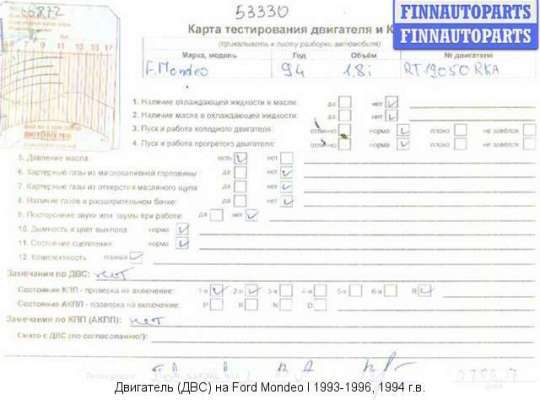 53330
FINNAUTOPARTS
FINNAUTOPARTS
Карта тестирования двигателя и К
(прикалывать к листу разборки автомобиля)
Марка, модель Год Объём № двигателя
F. Mondeo 94 1.8i RT19050 RKA
1. Наличие охлаждающей жидкости в масле: да нет
2. Наличие масла в охлаждающей жидкости: да нет
3. Пуск и работа холодного двигателя: отлично норма плохо не завёлся
4. Пуск и работа прогретого двигателя: отлично норма плохо не завёлся
5. Давление масла: есть нет
6. Картерные газы из маслозаливной горловины да нет
7. Картерные газы из отверстия масляного щупа да нет
8. Наличие газов в расширительном бачке: да нет
9. Посторонние звуки или шумы при работе: да нет
10. Дымность и цвет выхлопа норма
11. Состояние сцепления: норма
12. Комплектность полная
Замечания по ДВС: нет
Состояние КПП - проверка на включение: 1-я 2-я 3-я 4-я 5-я 6-я R
Состояние АКПП - проверка на включение: P R N D
Замечания по КПП (АКПП): нет
Снято с ДВС (по согласованию):
Двигатель (ДВС) на Ford Mondeo I 1993-1996, 1994 г.в.